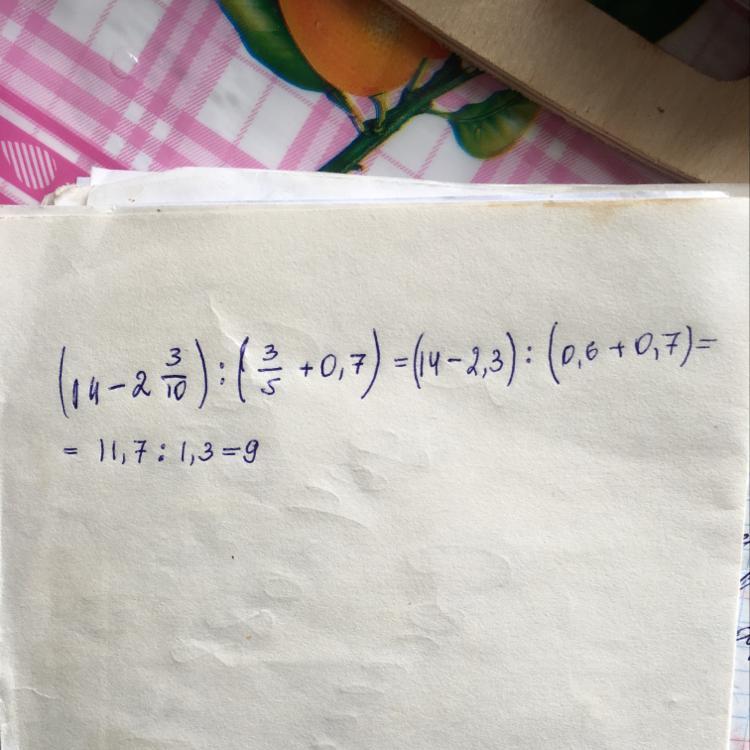 (14 - 2 3/10) : (3/5 + 0,7) = (14 - 2,3) : (0,6 + 0,7) =
= 11,7 : 1,3 = 9